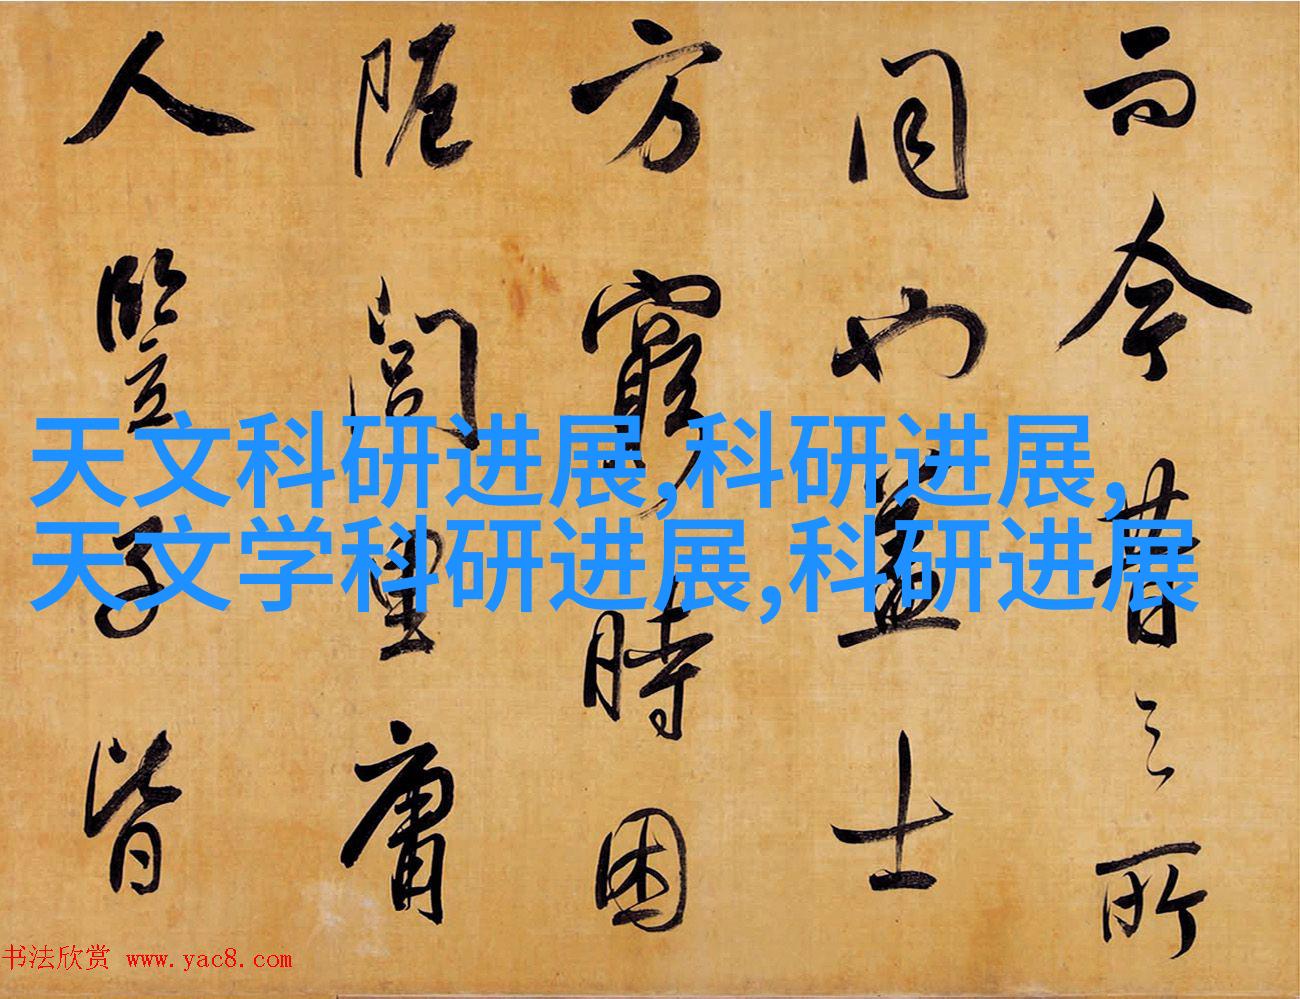 而今昔之所
同也蓋士
方窮時困
阨閭里庸
人竪子皆
天文科研进展,科研进展,
天文学科研进展,科研进展
书法欣赏 www.yac8.com